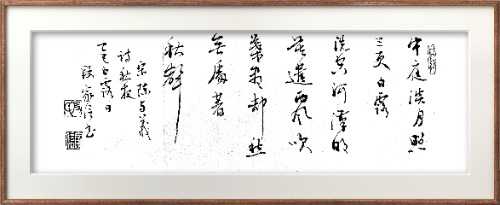 中庭淡月照
三更白露
洗空河漢明
莫遣西風吹
葉盡却愁
無處著
秋聲
宋陳与義
詩秋夜
乙巳白露日